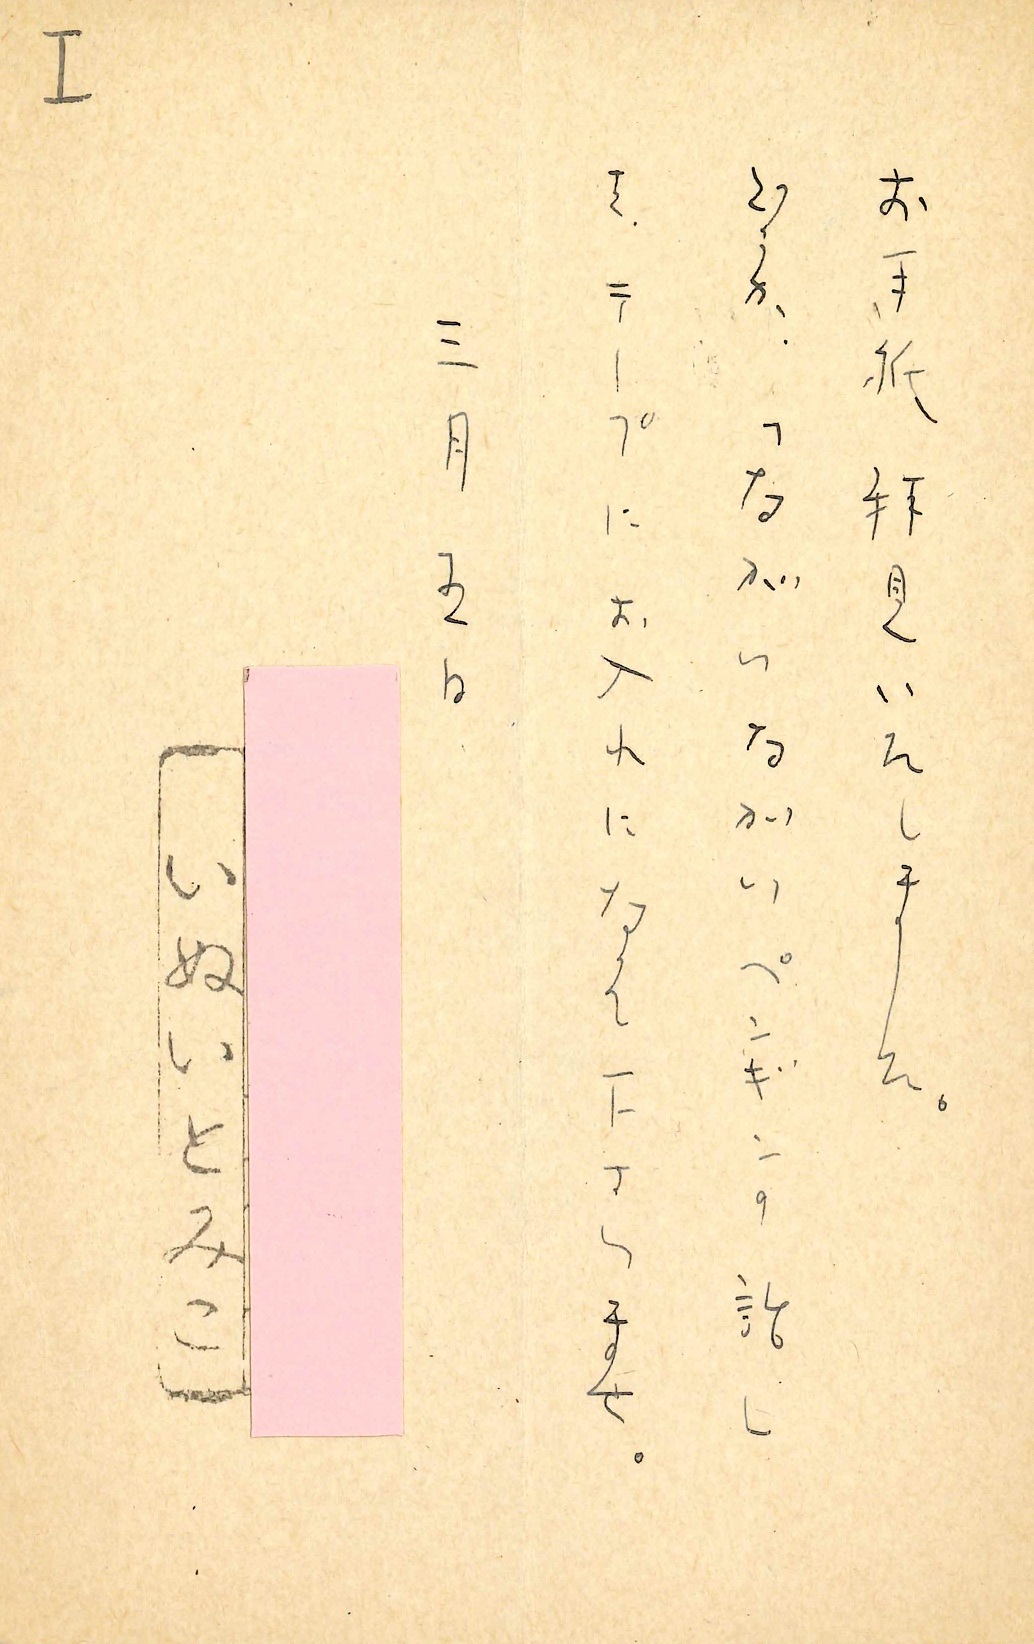 I
お手紙拝見いたしました。
どうか、「ながいながいペンギンの話」
を、テープにお入れになって下さいませ。
三月五日
いぬいとみこ